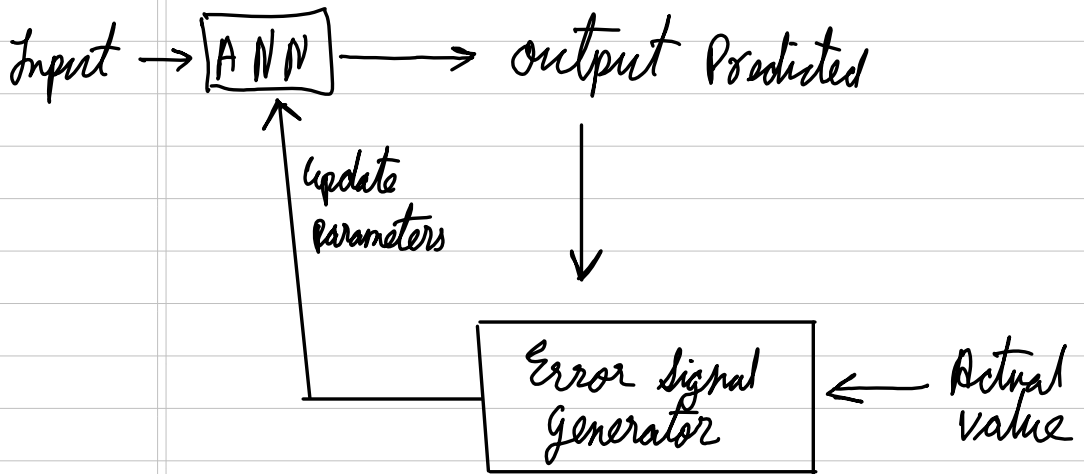 Input → ANN → Output Predicted
Update
Parameters
Error Signal
Generator
← Actual
Value